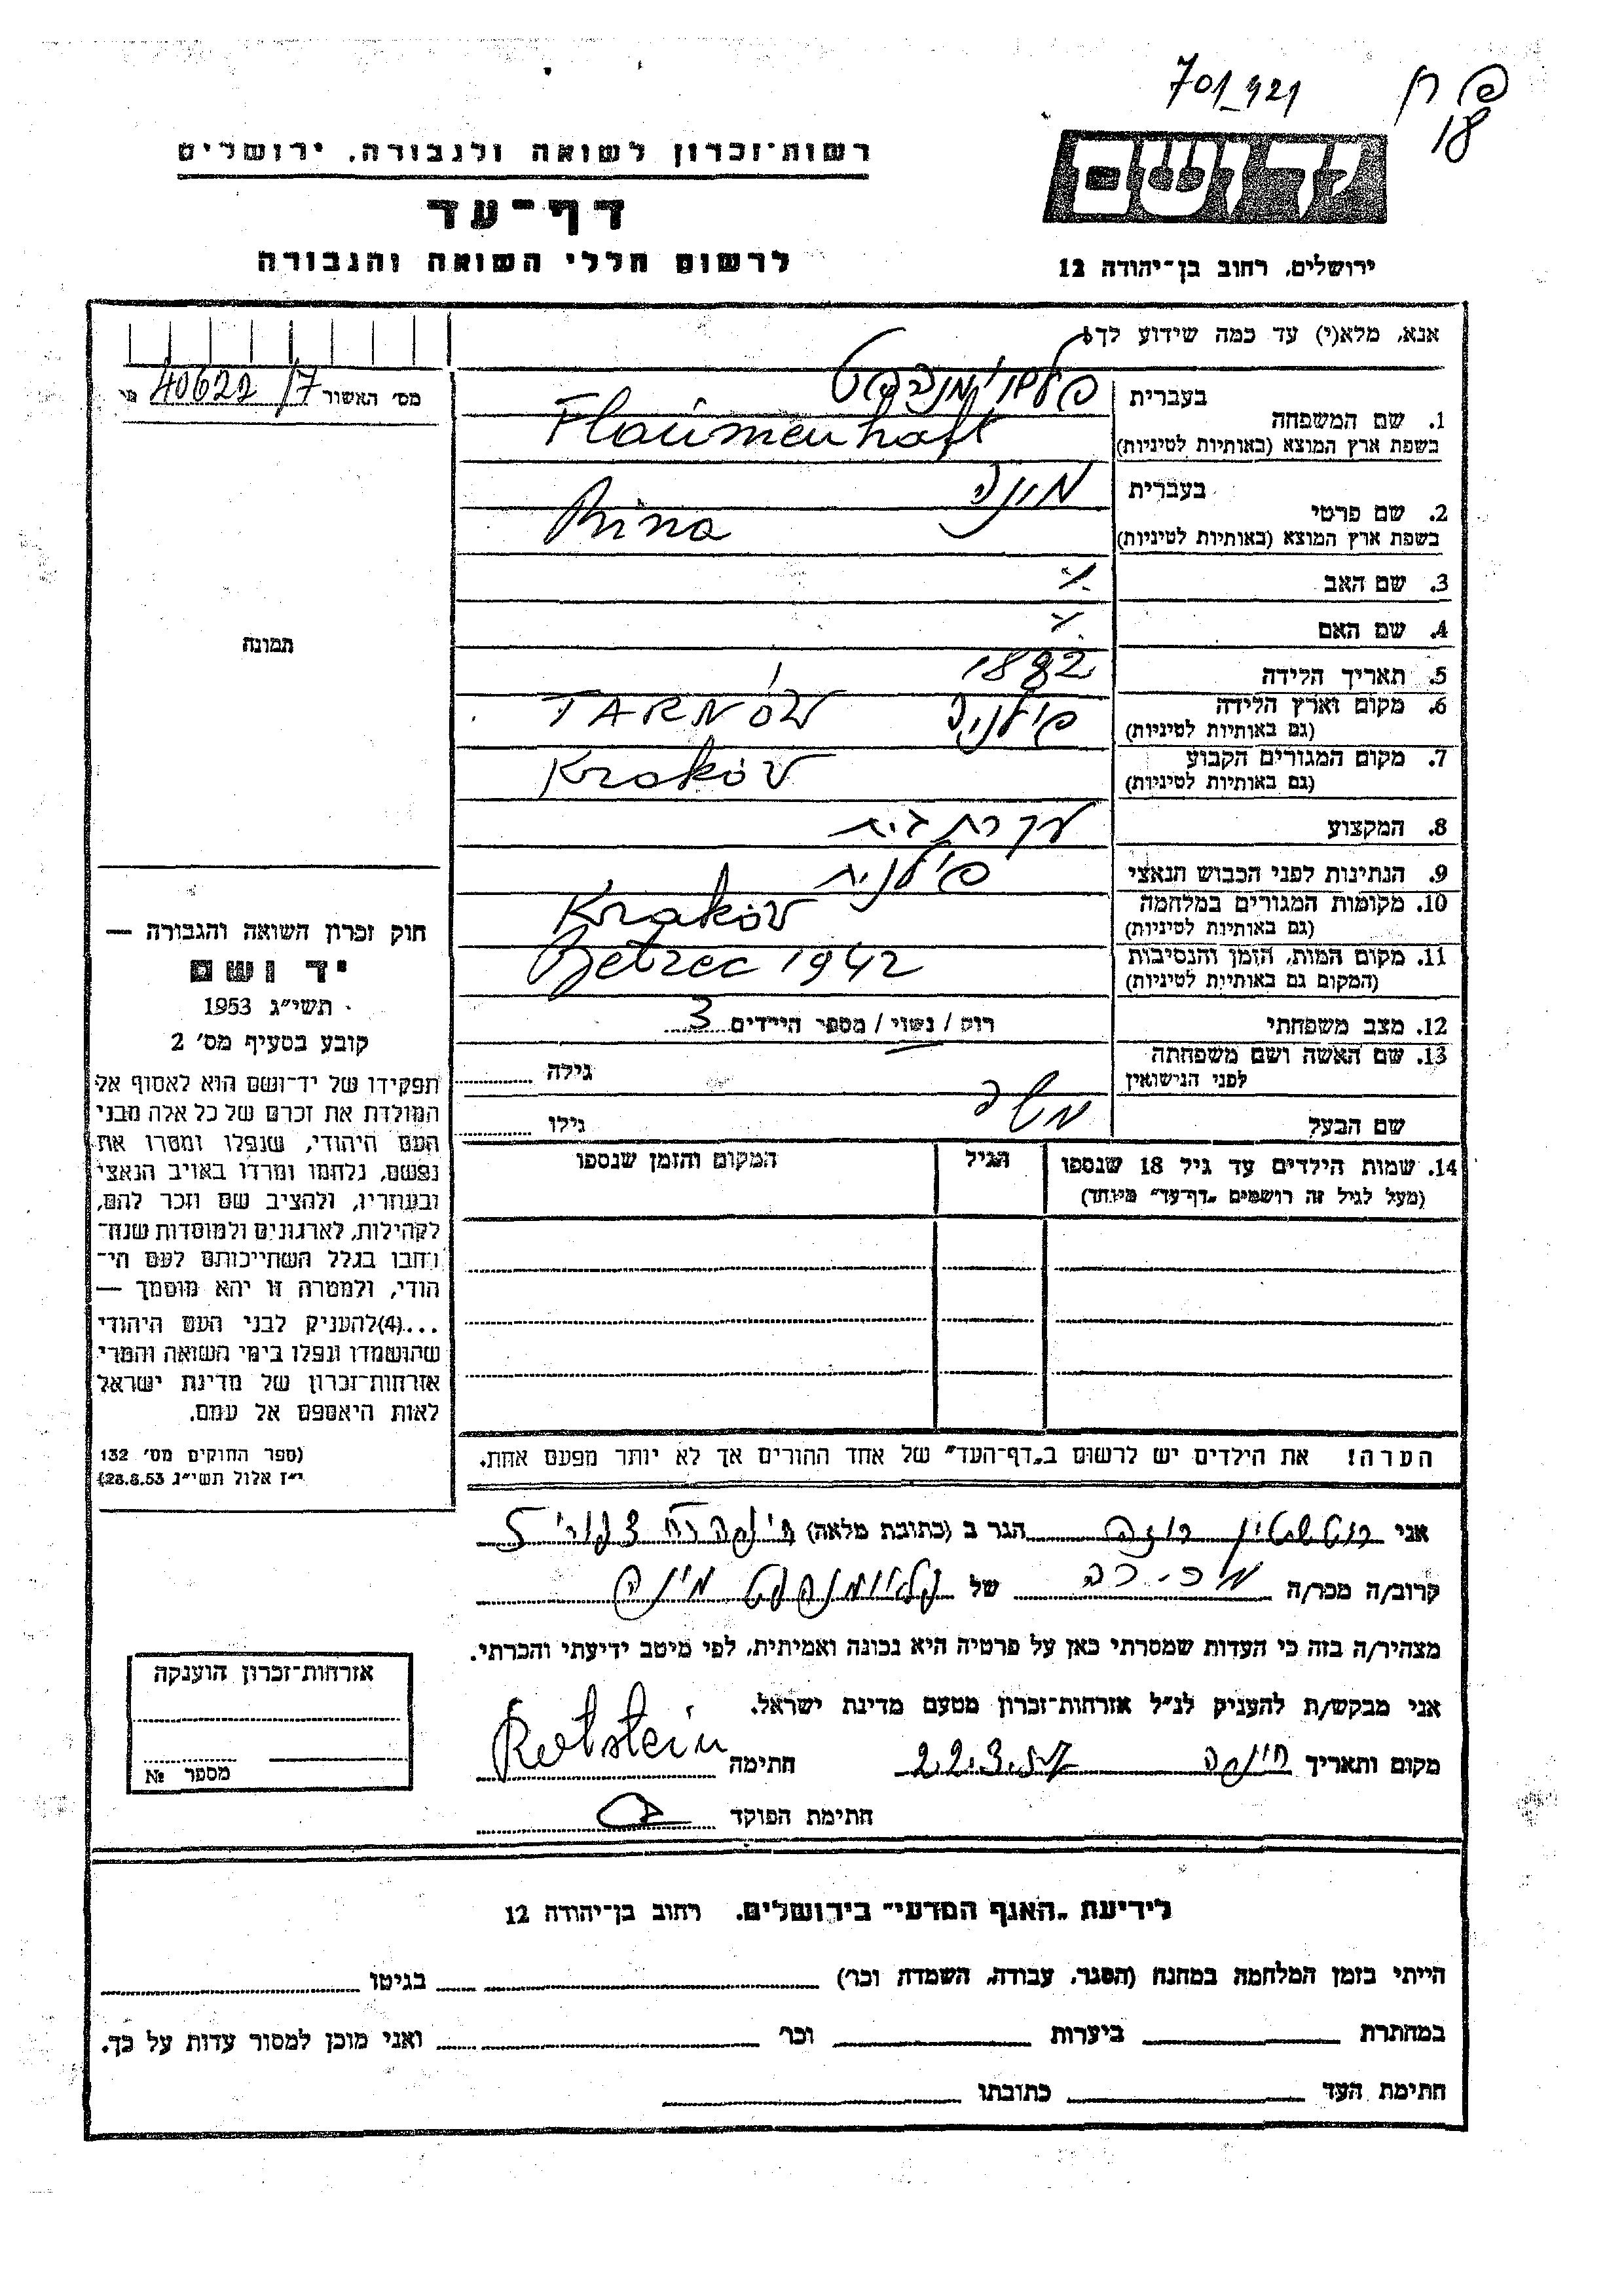 701_421
פ ח
18
יד ושם
ירושלים, רחוב בן־יהודה 12
רשות־זכרון לשואה ולגבורה, ירושלים
דף־עד
לרשום חללי השואה והגבורה
אנא, מלא(י) עד כמה שידוע לך!
מס׳ האשור 40622/7
1. שם המשפחה
בעברית
בשפת ארץ המוצא (באותיות לטיניות) Flaumenhaft
2. שם פרטי
בעברית מינה
בשפת ארץ המוצא (באותיות לטיניות) Mina
3. שם האב
4. שם האם
5. תאריך הלידה 1882
6. מקום וארץ הלידה (גם באותיות לטיניות) פולניה TARNÓW
7. מקום המגורים הקבוע (גם באותיות לטיניות) Kraków
8. המקצוע עקרת בית
9. הנתינות לפני הכבוש הנאצי פולנית
10. מקומות המגורים במלחמה (גם באותיות לטיניות) Kraków
11. מקום המות, הזמן והנסיבות (המקום גם באותיות לטיניות) Belzec 1942
12. מצב משפחתי רוק / נשוי / מספר הילדים 3
13. שם האשה ושם משפחתה לפני הנישואין גילה
שם הבעל משה גילו
14. שמות הילדים עד גיל 18 שנספו
(מעל לגיל זה רושמים „דף־עד״ מיוחד)
הגיל
המקום והזמן שנספו
הערה! את הילדים יש לרשום ב„דף־העד״ של אחד ההורים אך לא יותר מפעם אחת.
תמונה
חוק זכרון השואה והגבורה —
יד ושם
תשי״ג 1953
קובע בסעיף מס׳ 2
תפקידו של יד־ושם הוא לאסוף אל
המולדת את זכרם של כל אלה מבני
העם היהודי, שנפלו ומסרו את
נפשם, נלחמו ומרדו באויב הנאצי
ובעוזריו, ולהציב שם וזכר להם,
לקהילות, לארגונים ולמוסדות שנח־
רבו בגלל השתייכותם לעם הי־
הודי, ולמטרה זו יהא מוסמך —
...(4)להעניק לבני העם היהודי
שהושמדו ונפלו בימי השואה והמרי
אזרחות־זכרון של מדינת ישראל
לאות היאספם אל עמם.
(ספר החוקים מס׳ 132
י״ז אלול תשי״ג 28.8.53)
אני רוטשטיין רוזה הגר ב (כתובת מלאה) חיפה רח 5
קרוב/ה מכר/ה מכירה של פלאומנהפט מינה
מצהיר/ה בזה כי העדות שמסרתי כאן על פרטיה היא נכונה ואמיתית, לפי מיטב ידיעתי והכרתי.
אני מבקש/ת להעניק לנ״ל אזרחות־זכרון מטעם מדינת ישראל.
מקום ותאריך חיפה 22.3.57 חתימה Rotstein
חתימת הפוקד
אזרחות־זכרון הוענקה
מספר №
לידיעת „האגף המדעי״ בירושלים, רחוב בן־יהודה 12
הייתי בזמן המלחמה במחנה (הסגר, עבודה, השמדה וכו׳) בגיטו
במחתרת ביערות וכו׳ ואני מוכן למסור עדות על כך.
חתימת העד כתובתו